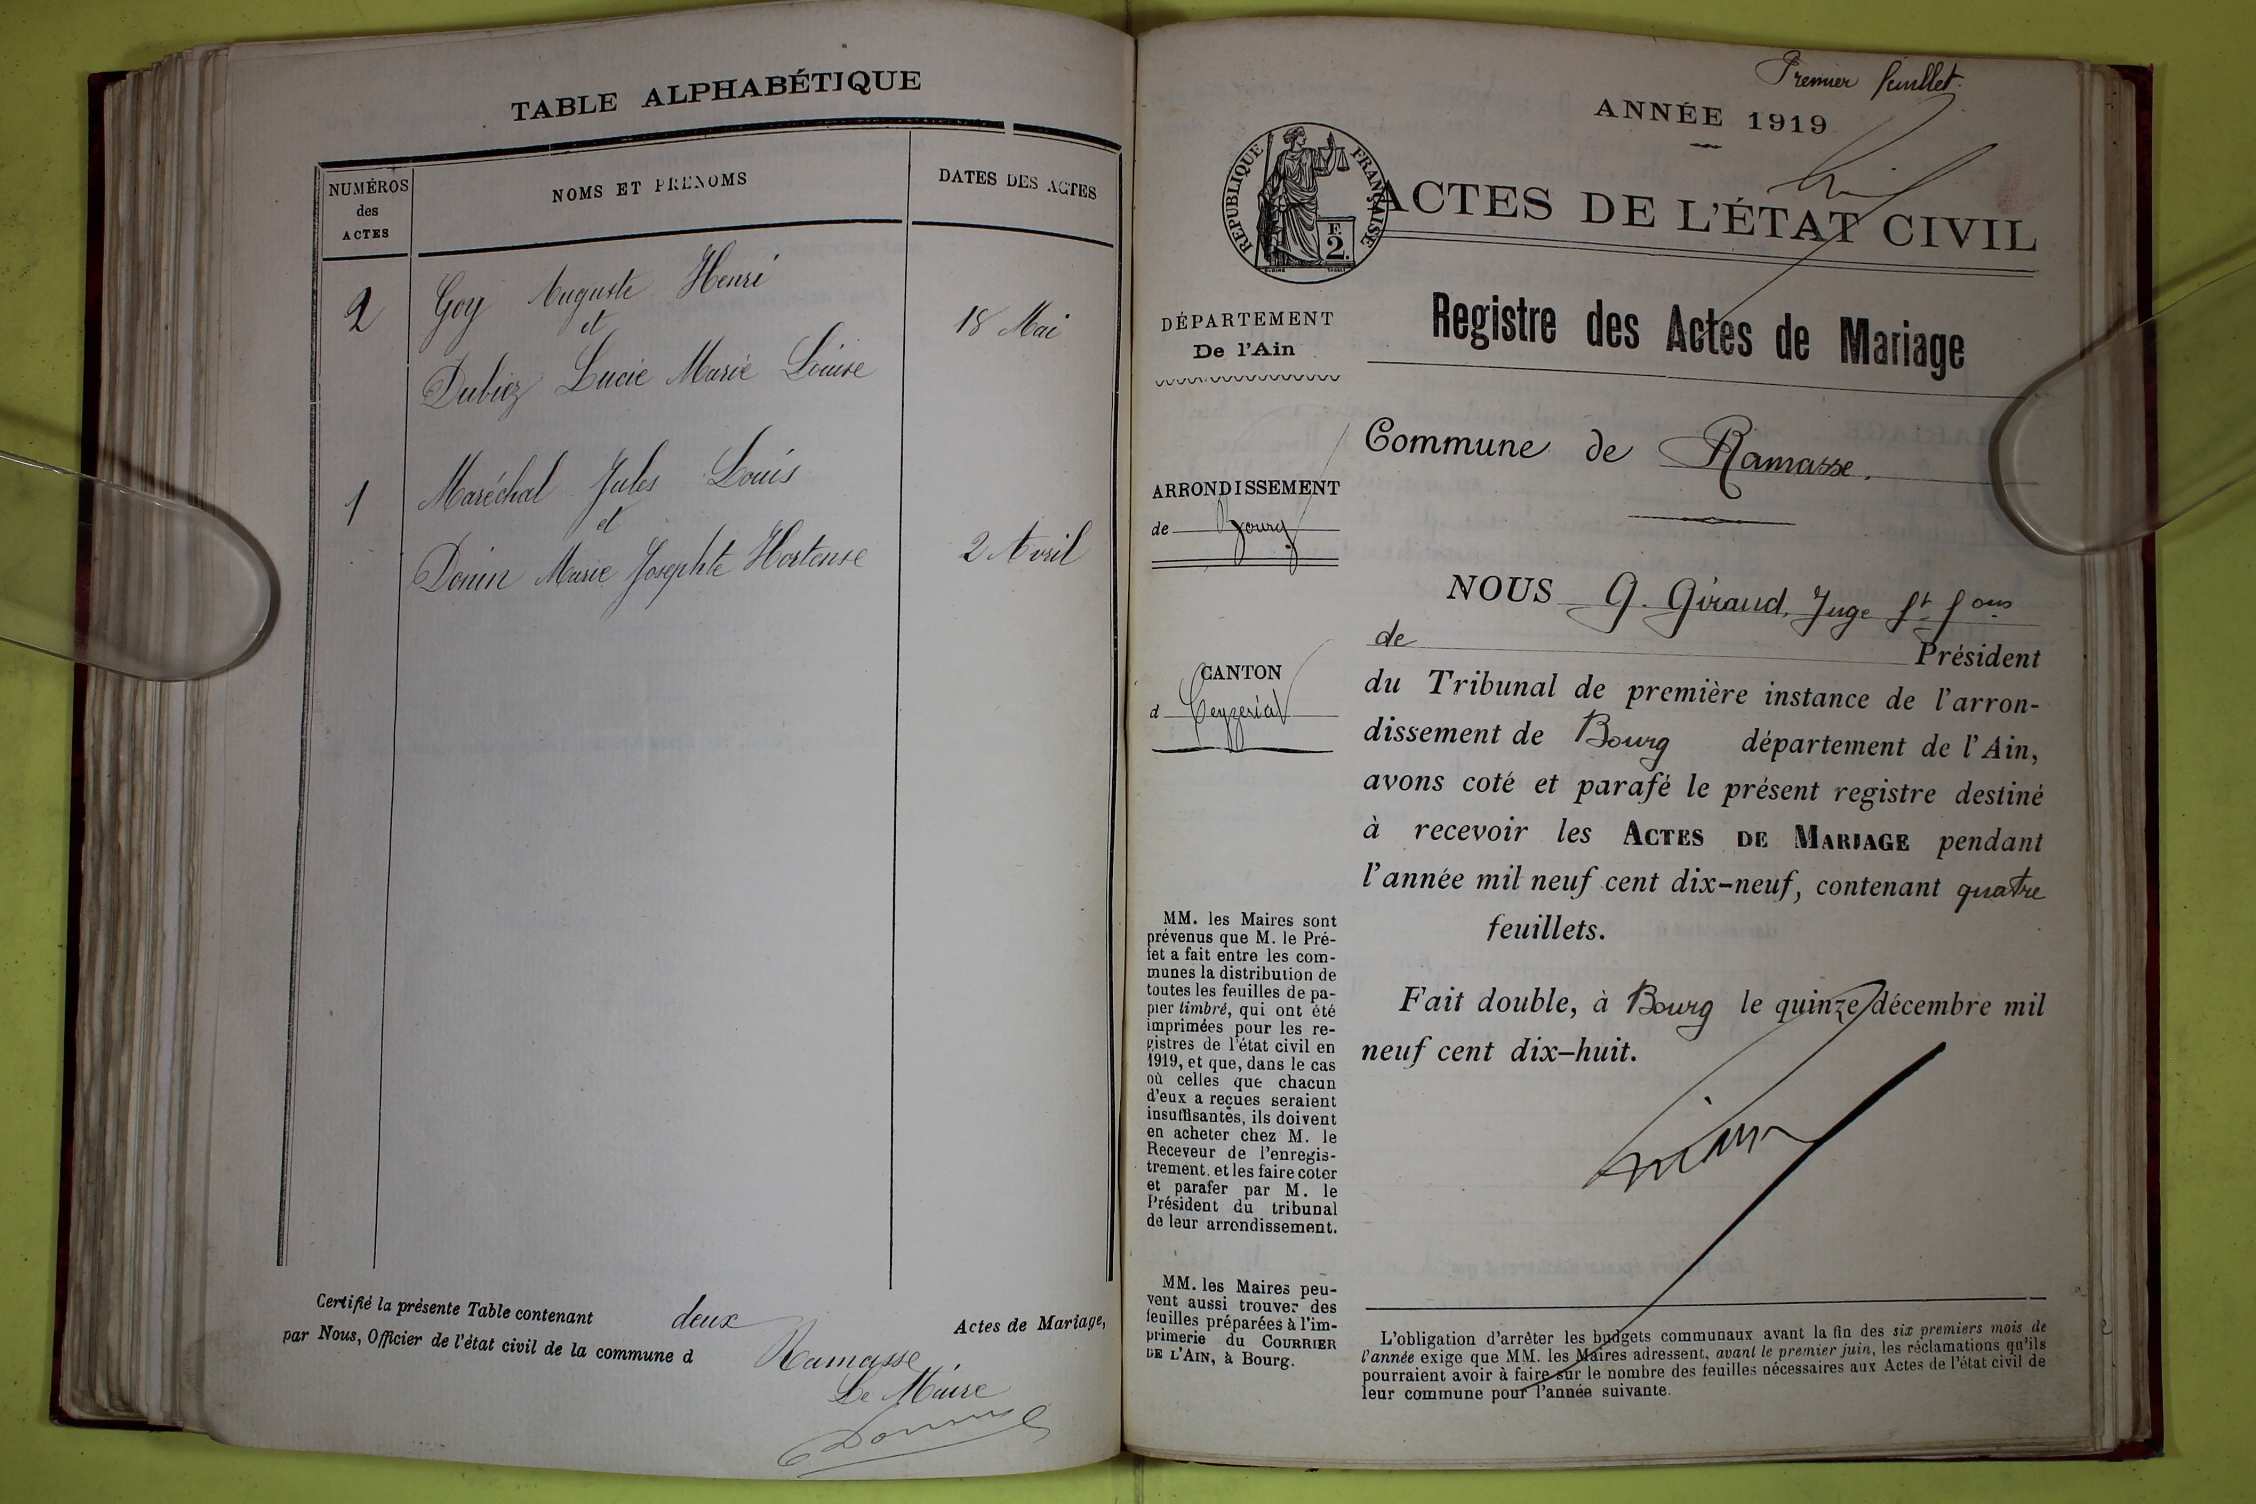 TABLE ALPHABÉTIQUE
NUMÉROS
des
ACTES
NOMS ET PRÉNOMS
DATES DES ACTES
2
Goy Auguste Henri
et
Dubiez Lucie Marie Louise
18 Mai
1
Maréchal Jules Louis
et
Donin Marie Josephte Hortense
2 Avril
Certifié la présente Table contenant deux Actes de Mariage,
par Nous, Officier de l'état civil de la commune d Ramasse
Le Maire
Premier feuillet.
ANNÉE 1919
RÉPUBLIQUE FRANÇAISE
F.
2.
ACTES DE L'ÉTAT CIVIL
Registre des Actes de Mariage
DÉPARTEMENT
De l'Ain
Commune de Ramasse.
ARRONDISSEMENT
de Bourg
CANTON
d Ceyzériat
NOUS G. Giraud, Juge ft fons
de Président
du Tribunal de première instance de l'arron-
dissement de Bourg département de l'Ain,
avons coté et parafé le présent registre destiné
à recevoir les ACTES DE MARIAGE pendant
l'année mil neuf cent dix-neuf, contenant quatre
feuillets.
Fait double, à Bourg le quinze décembre mil
neuf cent dix-huit.
MM. les Maires sont
prévenus que M. le Pré-
fet a fait entre les com-
munes la distribution de
toutes les feuilles de pa-
pier timbré, qui ont été
imprimées pour les re-
gistres de l'état civil en
1919, et que, dans le cas
où celles que chacun
d'eux a reçues seraient
insuffisantes, ils doivent
en acheter chez M. le
Receveur de l'enregis-
trement. et les faire coter
et parafer par M. le
Président du tribunal
de leur arrondissement.
MM. les Maires peu-
vent aussi trouver des
feuilles préparées à l'im-
primerie du COURRIER
DE L'AIN, à Bourg.
L'obligation d'arrêter les budgets communaux avant la fin des six premiers mois de
l'année exige que MM. les Maires adressent, avant le premier juin, les réclamations qu'ils
pourraient avoir à faire sur le nombre des feuilles nécessaires aux Actes de l'état civil de
leur commune pour l'année suivante.